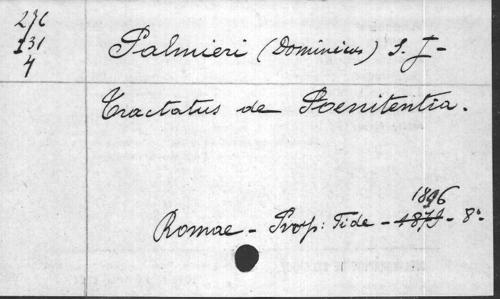 276
131
4
Palmieri (Dominicus) S. J-
Tractatus de Poenitentia.
1896
Romae - Prop: Fide - 1879 - 8º